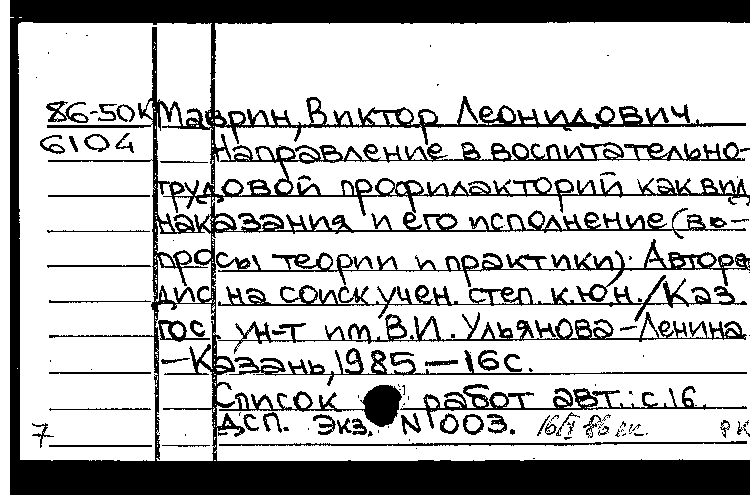 86-50к Маврин, Виктор Леонидович.
6104 Направление в воспитательно-
трудовой профилакторий как вид
наказания и его исполнение (во-
просы теории и практики): Авторе
дис. на соиск. учен. степ. к.ю.н. / Каз.
гос. ун-т им. В.И. Ульянова-Ленина
—Казань, 1985.—16с.
Список работ авт.: с.16.
ДСП. Экз. N 003. 16/I 86
7